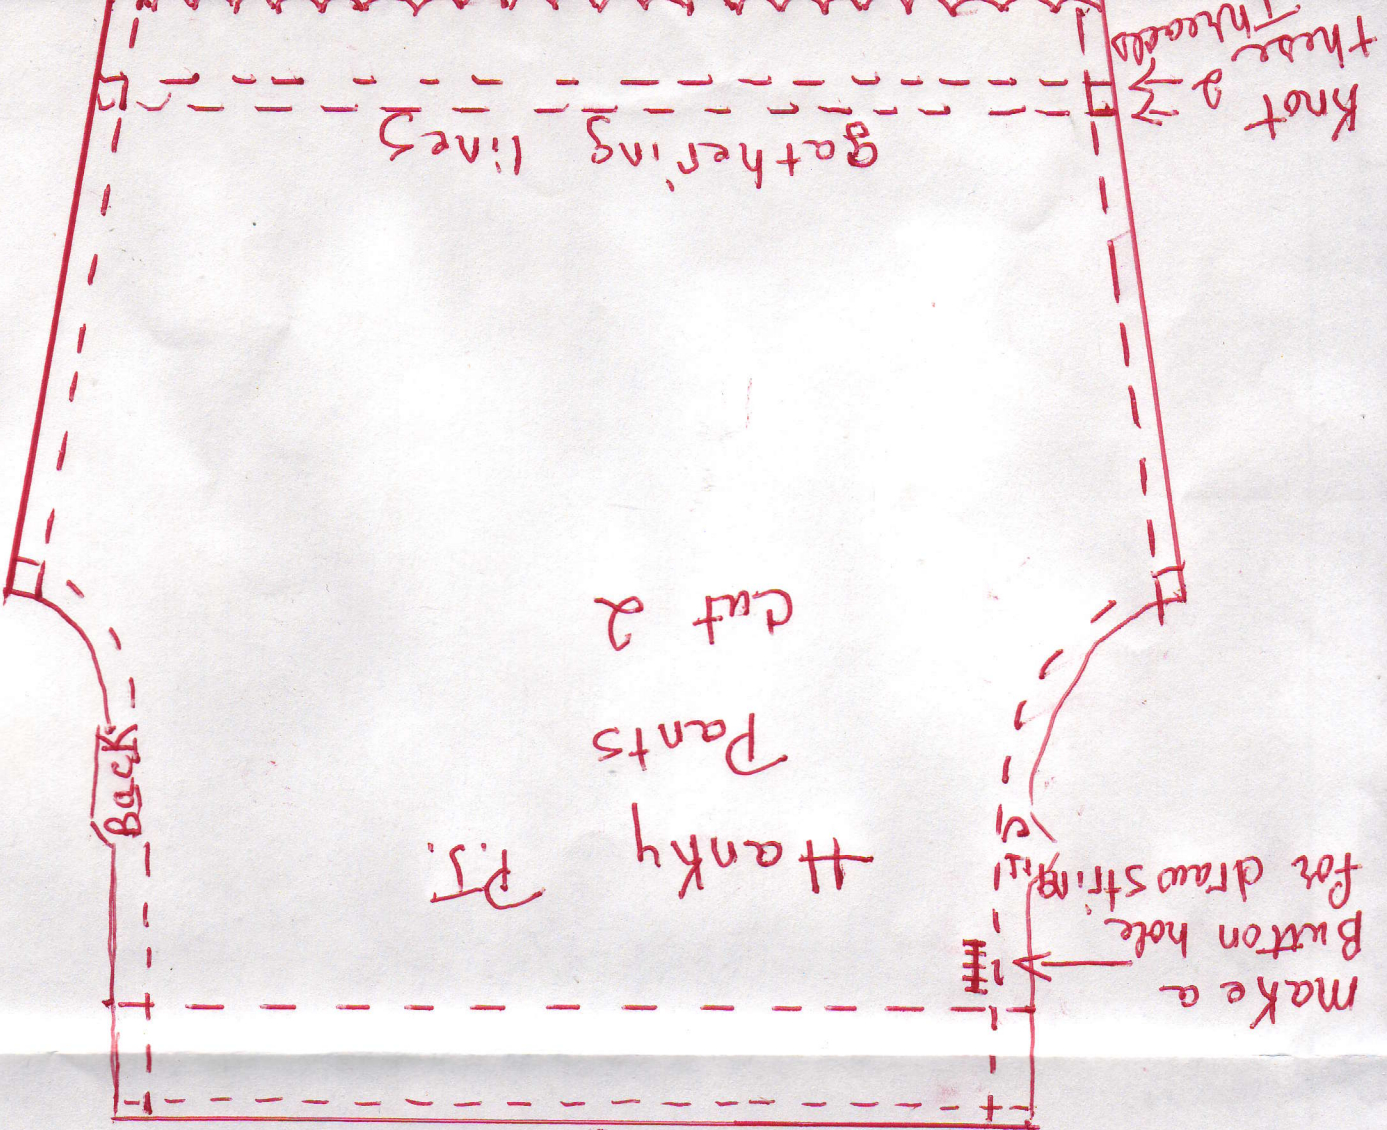 make a
Button hole
for drawstring
Hanky P.J.
Pants
Cut 2
Back
gathering lines
Knot
these 2
Threads